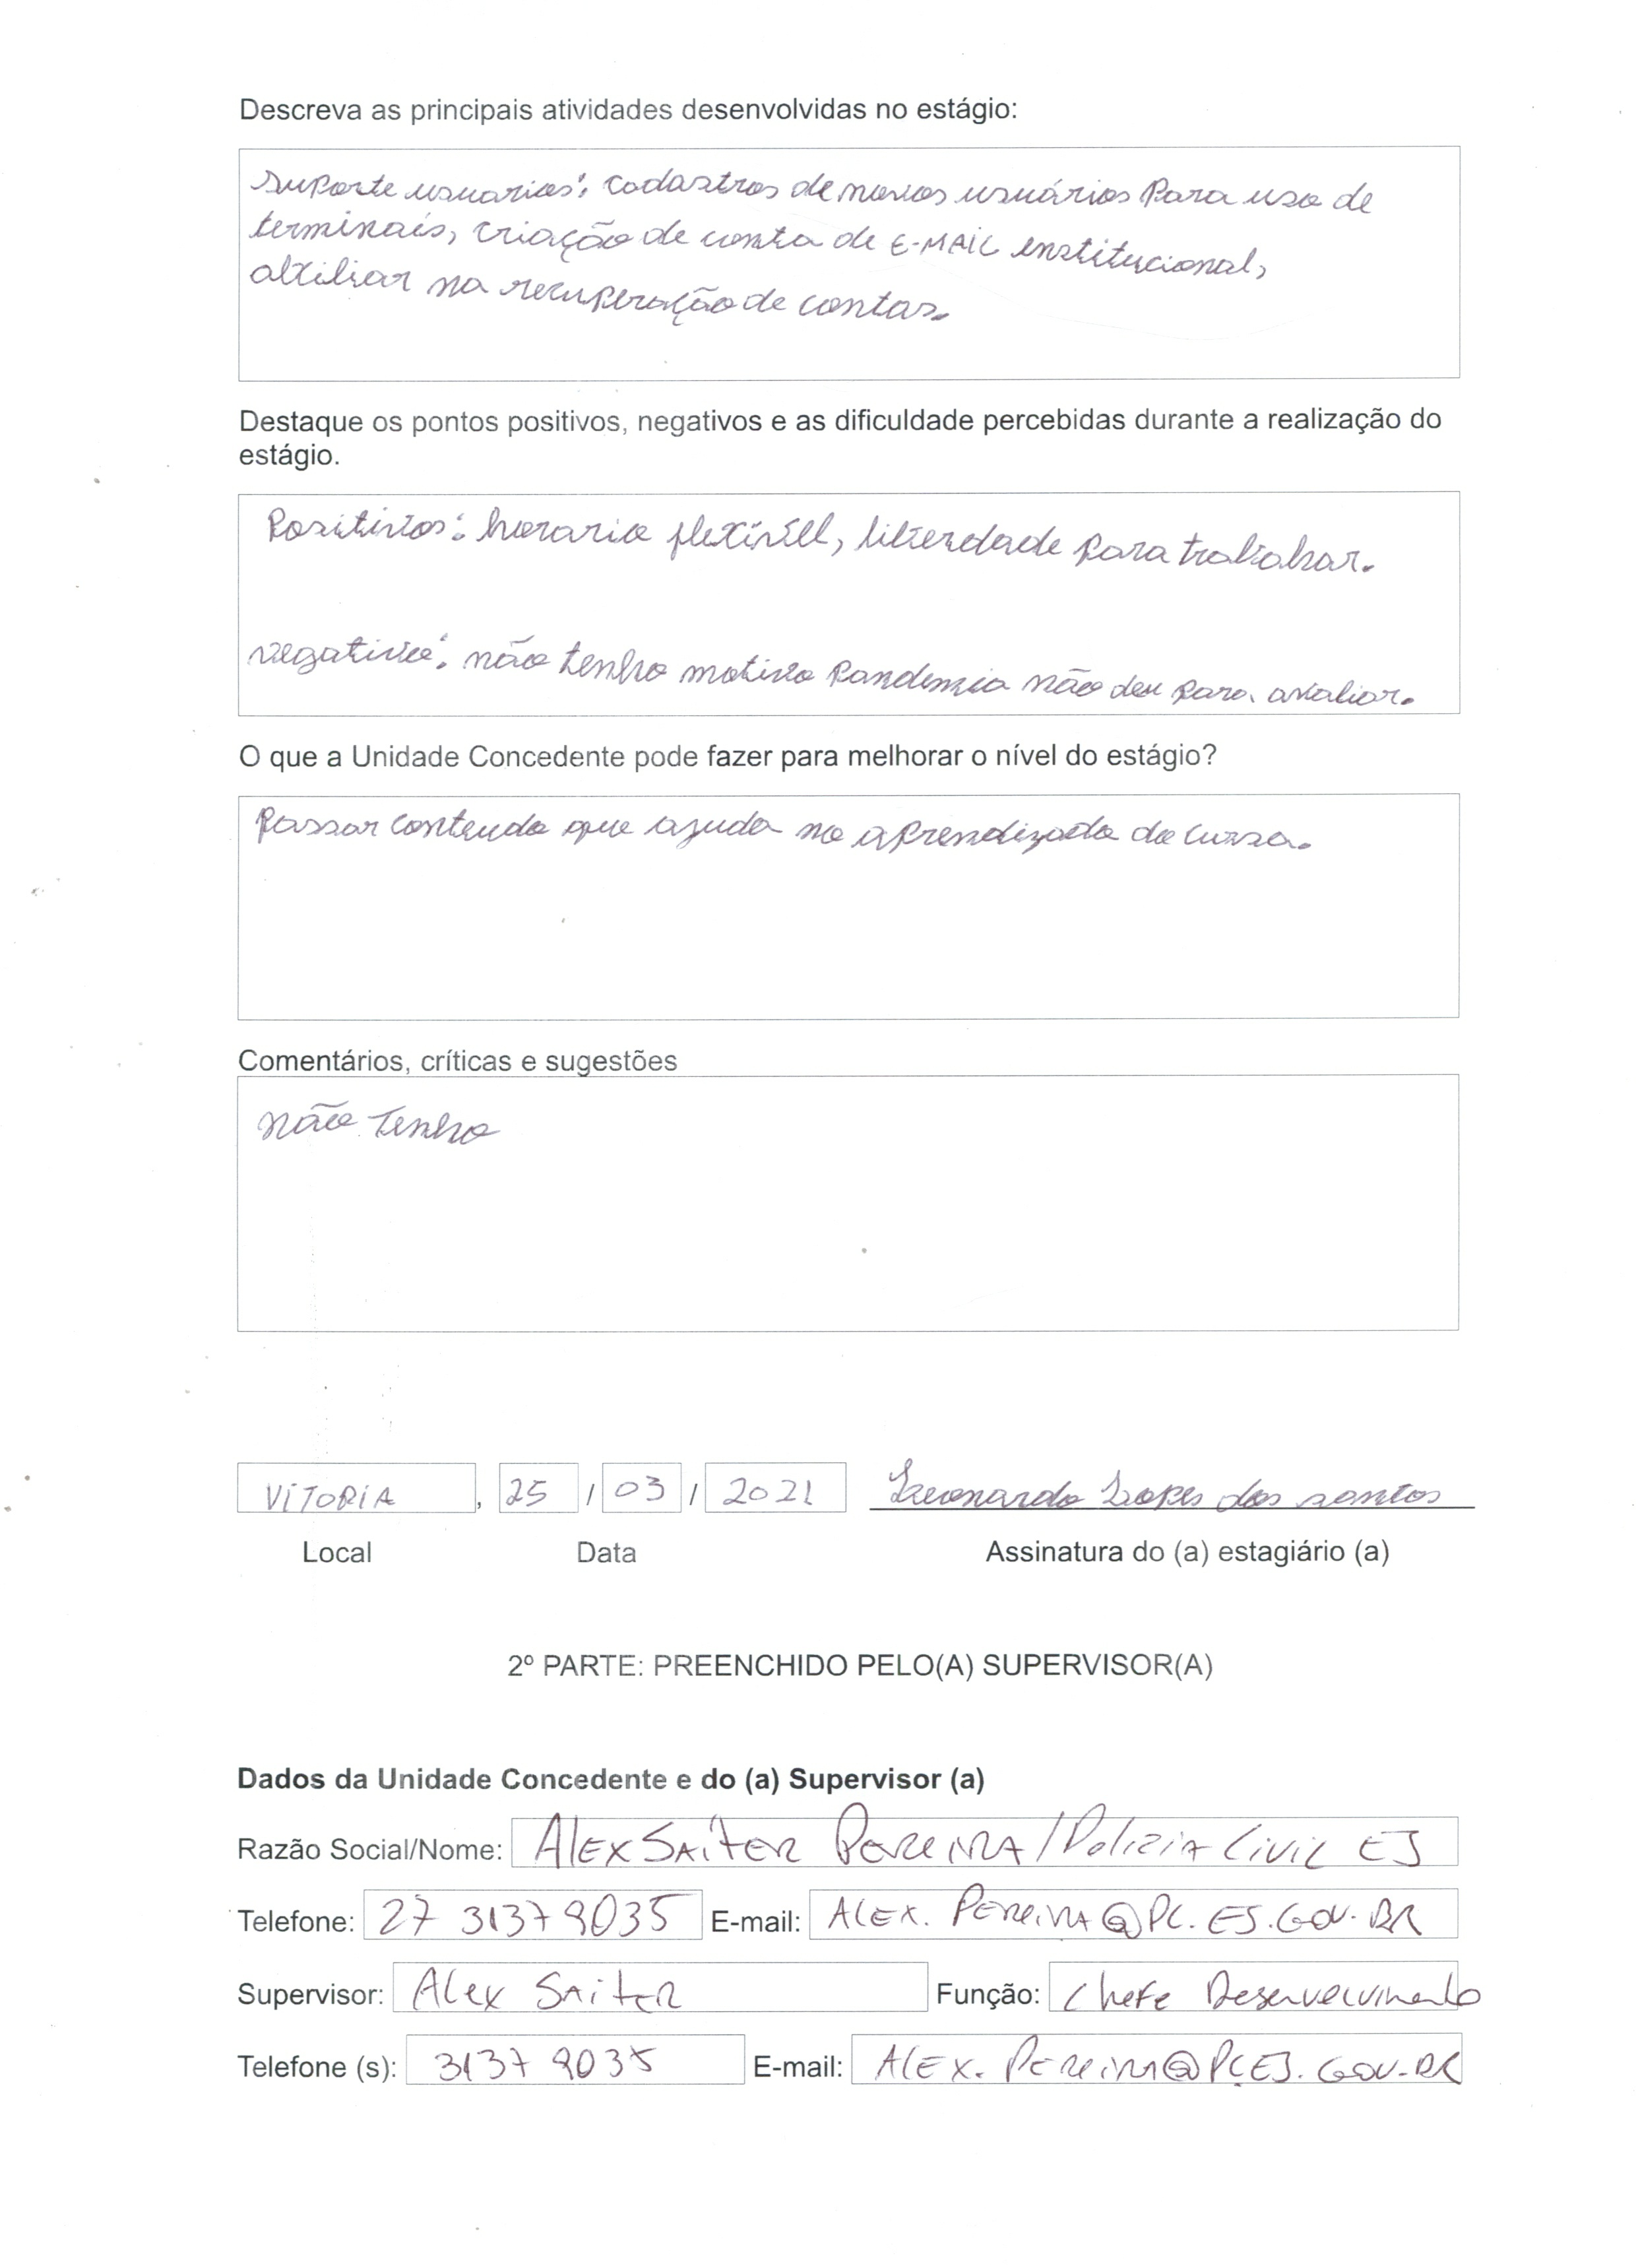 Descreva as principais atividades desenvolvidas no estágio:
Suporte usuarios: cadastros de novos usuários Para uso de
terminais, criação de conta de E-MAIL enstitucional,
alxiliar na recuperação de contas.
Destaque os pontos positivos, negativos e as dificuldade percebidas durante a realização do
estágio.
Positivos: horario flexívell, liberdade para trabalhar.
negativo: não tenho motivo Pandemia não deu para avaliar.
O que a Unidade Concedente pode fazer para melhorar o nível do estágio?
Passar conteudo que ajuda no aprendizado do curso.
Comentários, críticas e sugestões
não Tenho
VITORIA, 25 / 03 / 2021 Leonardo Lopes dos santos
Local Data Assinatura do (a) estagiário (a)
2º PARTE: PREENCHIDO PELO(A) SUPERVISOR(A)
Dados da Unidade Concedente e do (a) Supervisor (a)
Razão Social/Nome: ALEX SAITER PEREIRA / Polizia Civil ES
Telefone: 27 31379035 E-mail: ALEX.PEREIRA@PC.ES.GOV.BR
Supervisor: Alex Saiter Função: Chefe Desenvolvimento
Telefone (s): 3137 9035 E-mail: ALEX.PEREIRA@PC.ES.GOV.BR